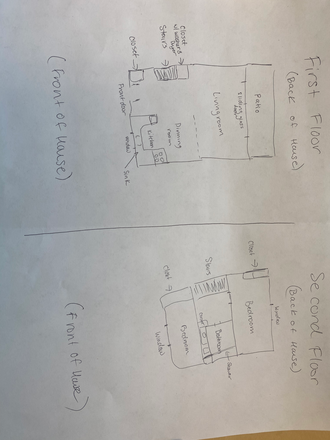 First Floor
(Back of House)
Patio
Sliding glass door
Living room
Closet
Stairs
Closet →
Dinning room
Kitchen
Front door
window
Sink
(Front of House)
Second Floor
(Back of House)
window
Closet →
Bedroom
Stairs
Bathroom
Closet →
Bedroom
Window
(Front of House)